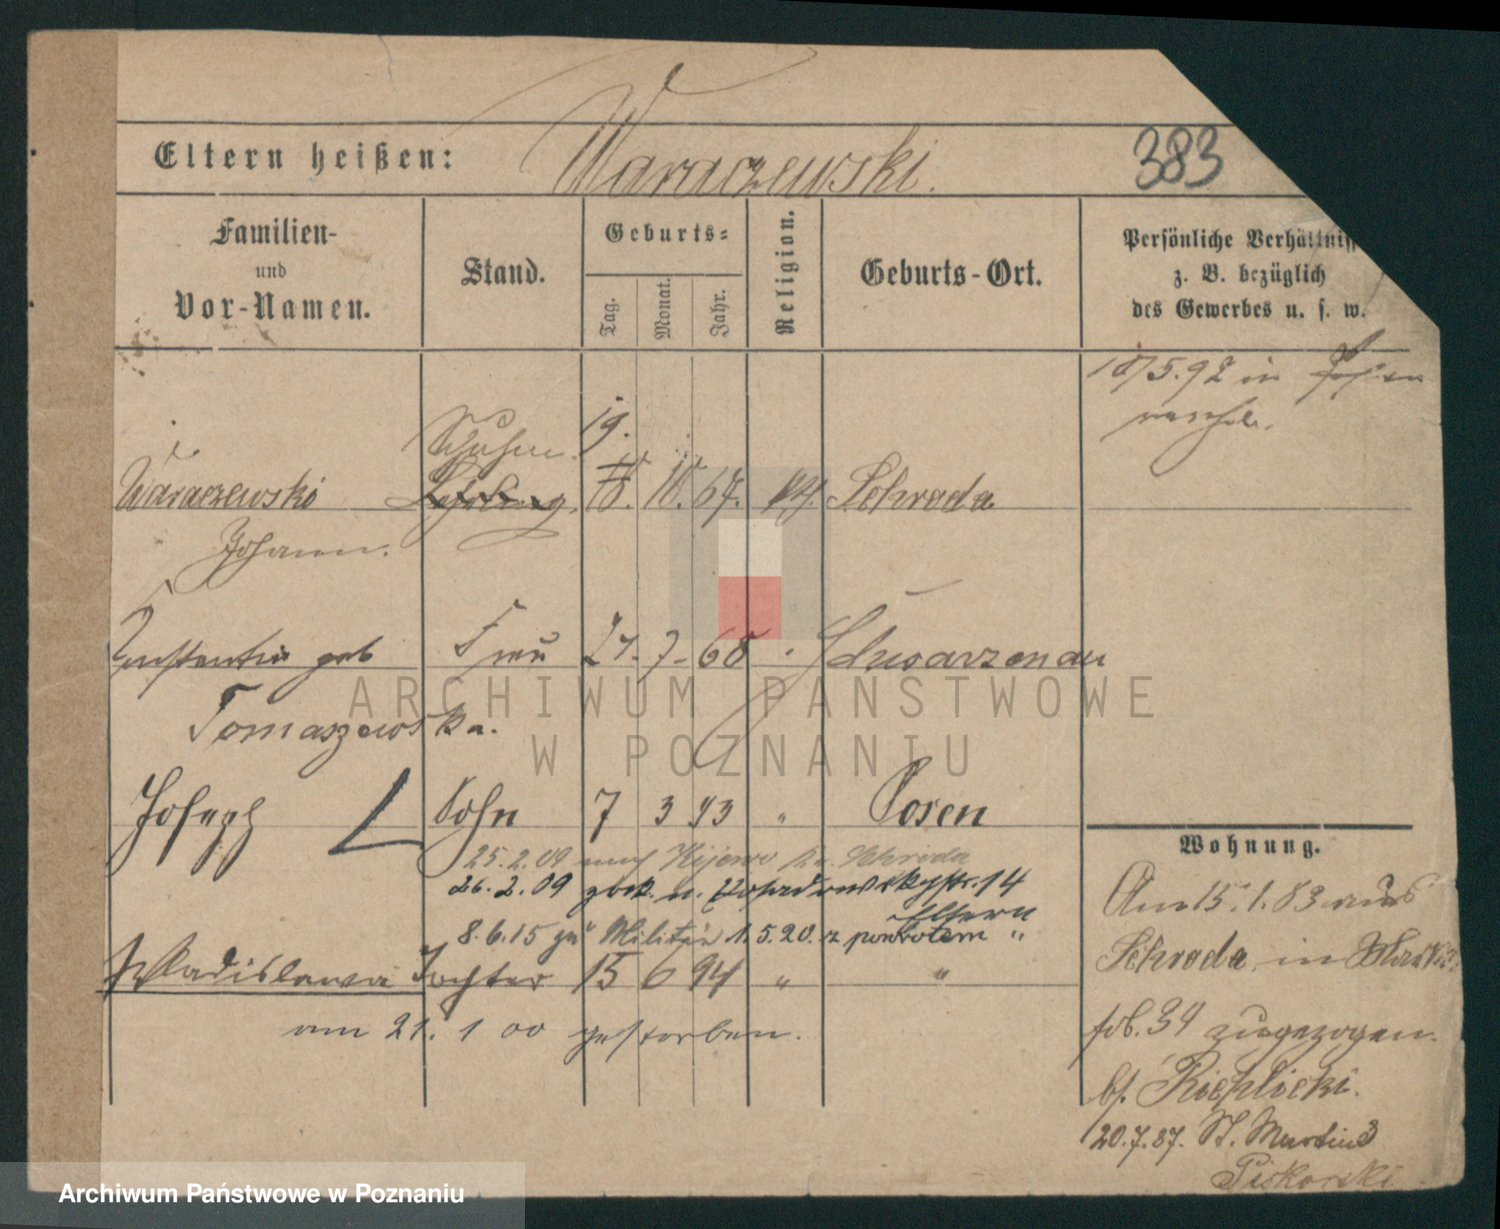 Eltern heißen: Waraczewski. 383
Familien-
und
Vor-Namen.
Stand.
Geburts-
Tag.
Monat.
Jahr.
Religion.
Geburts-Ort.
Persönliche Verhältniss
z. B. bezüglich
des Gewerbes u. s. w.
5.92 in
Schuhm. 19.
Waraczewski Lehrling 18. 10. 67. kth. Schroda
Johann.
Constantia geb Frau 7 68 " Schwarzenau
Tomaszewska.
Joseph Sohn 7 3 93 " Posen
25.2.09 nach Kijewo Kr. Schroda
26.2.09 zck. n. str. 14
Eltern
8.6.15 zu Militär 1.5.20. z powrotem "
Wladislawa Tochter 15 6 94 " "
am 21. 1 00 gestorben.
Wohnung.
Am 15.1.83 aus
Schroda in
34 zugezogen.
bf.
20.7.87. St. Martin 3
Piskorski
Archiwum Państwowe w Poznaniu
ARCHIWUM PAŃSTWOWE
W POZNANIU